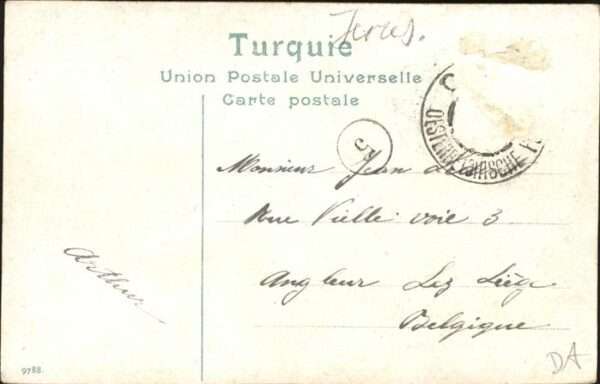 Jerus.
Turquie
Union Postale Universelle
Carte postale
OESTERREICHISCHE
Monsieur Jean
Rue Vieille voie 3
Angleur Lez Liége
Belgique
Arthur
9788.
DA